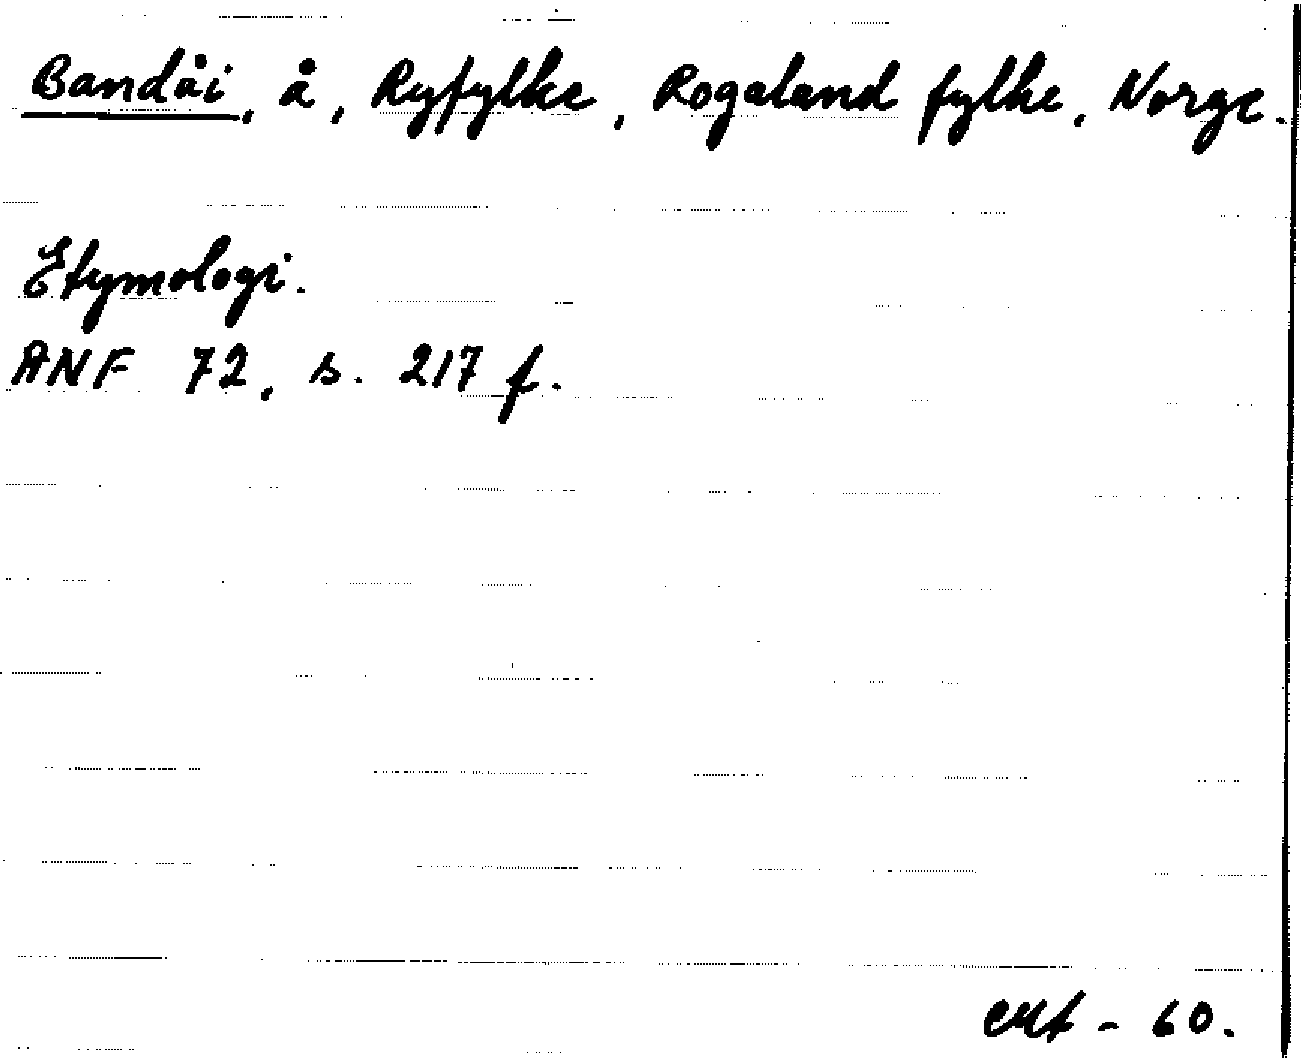 Bandåi, å, Ryfylke, Rogaland fylke, Norge.
Etymologi.
ANF 72, s. 217 f.
- 60.